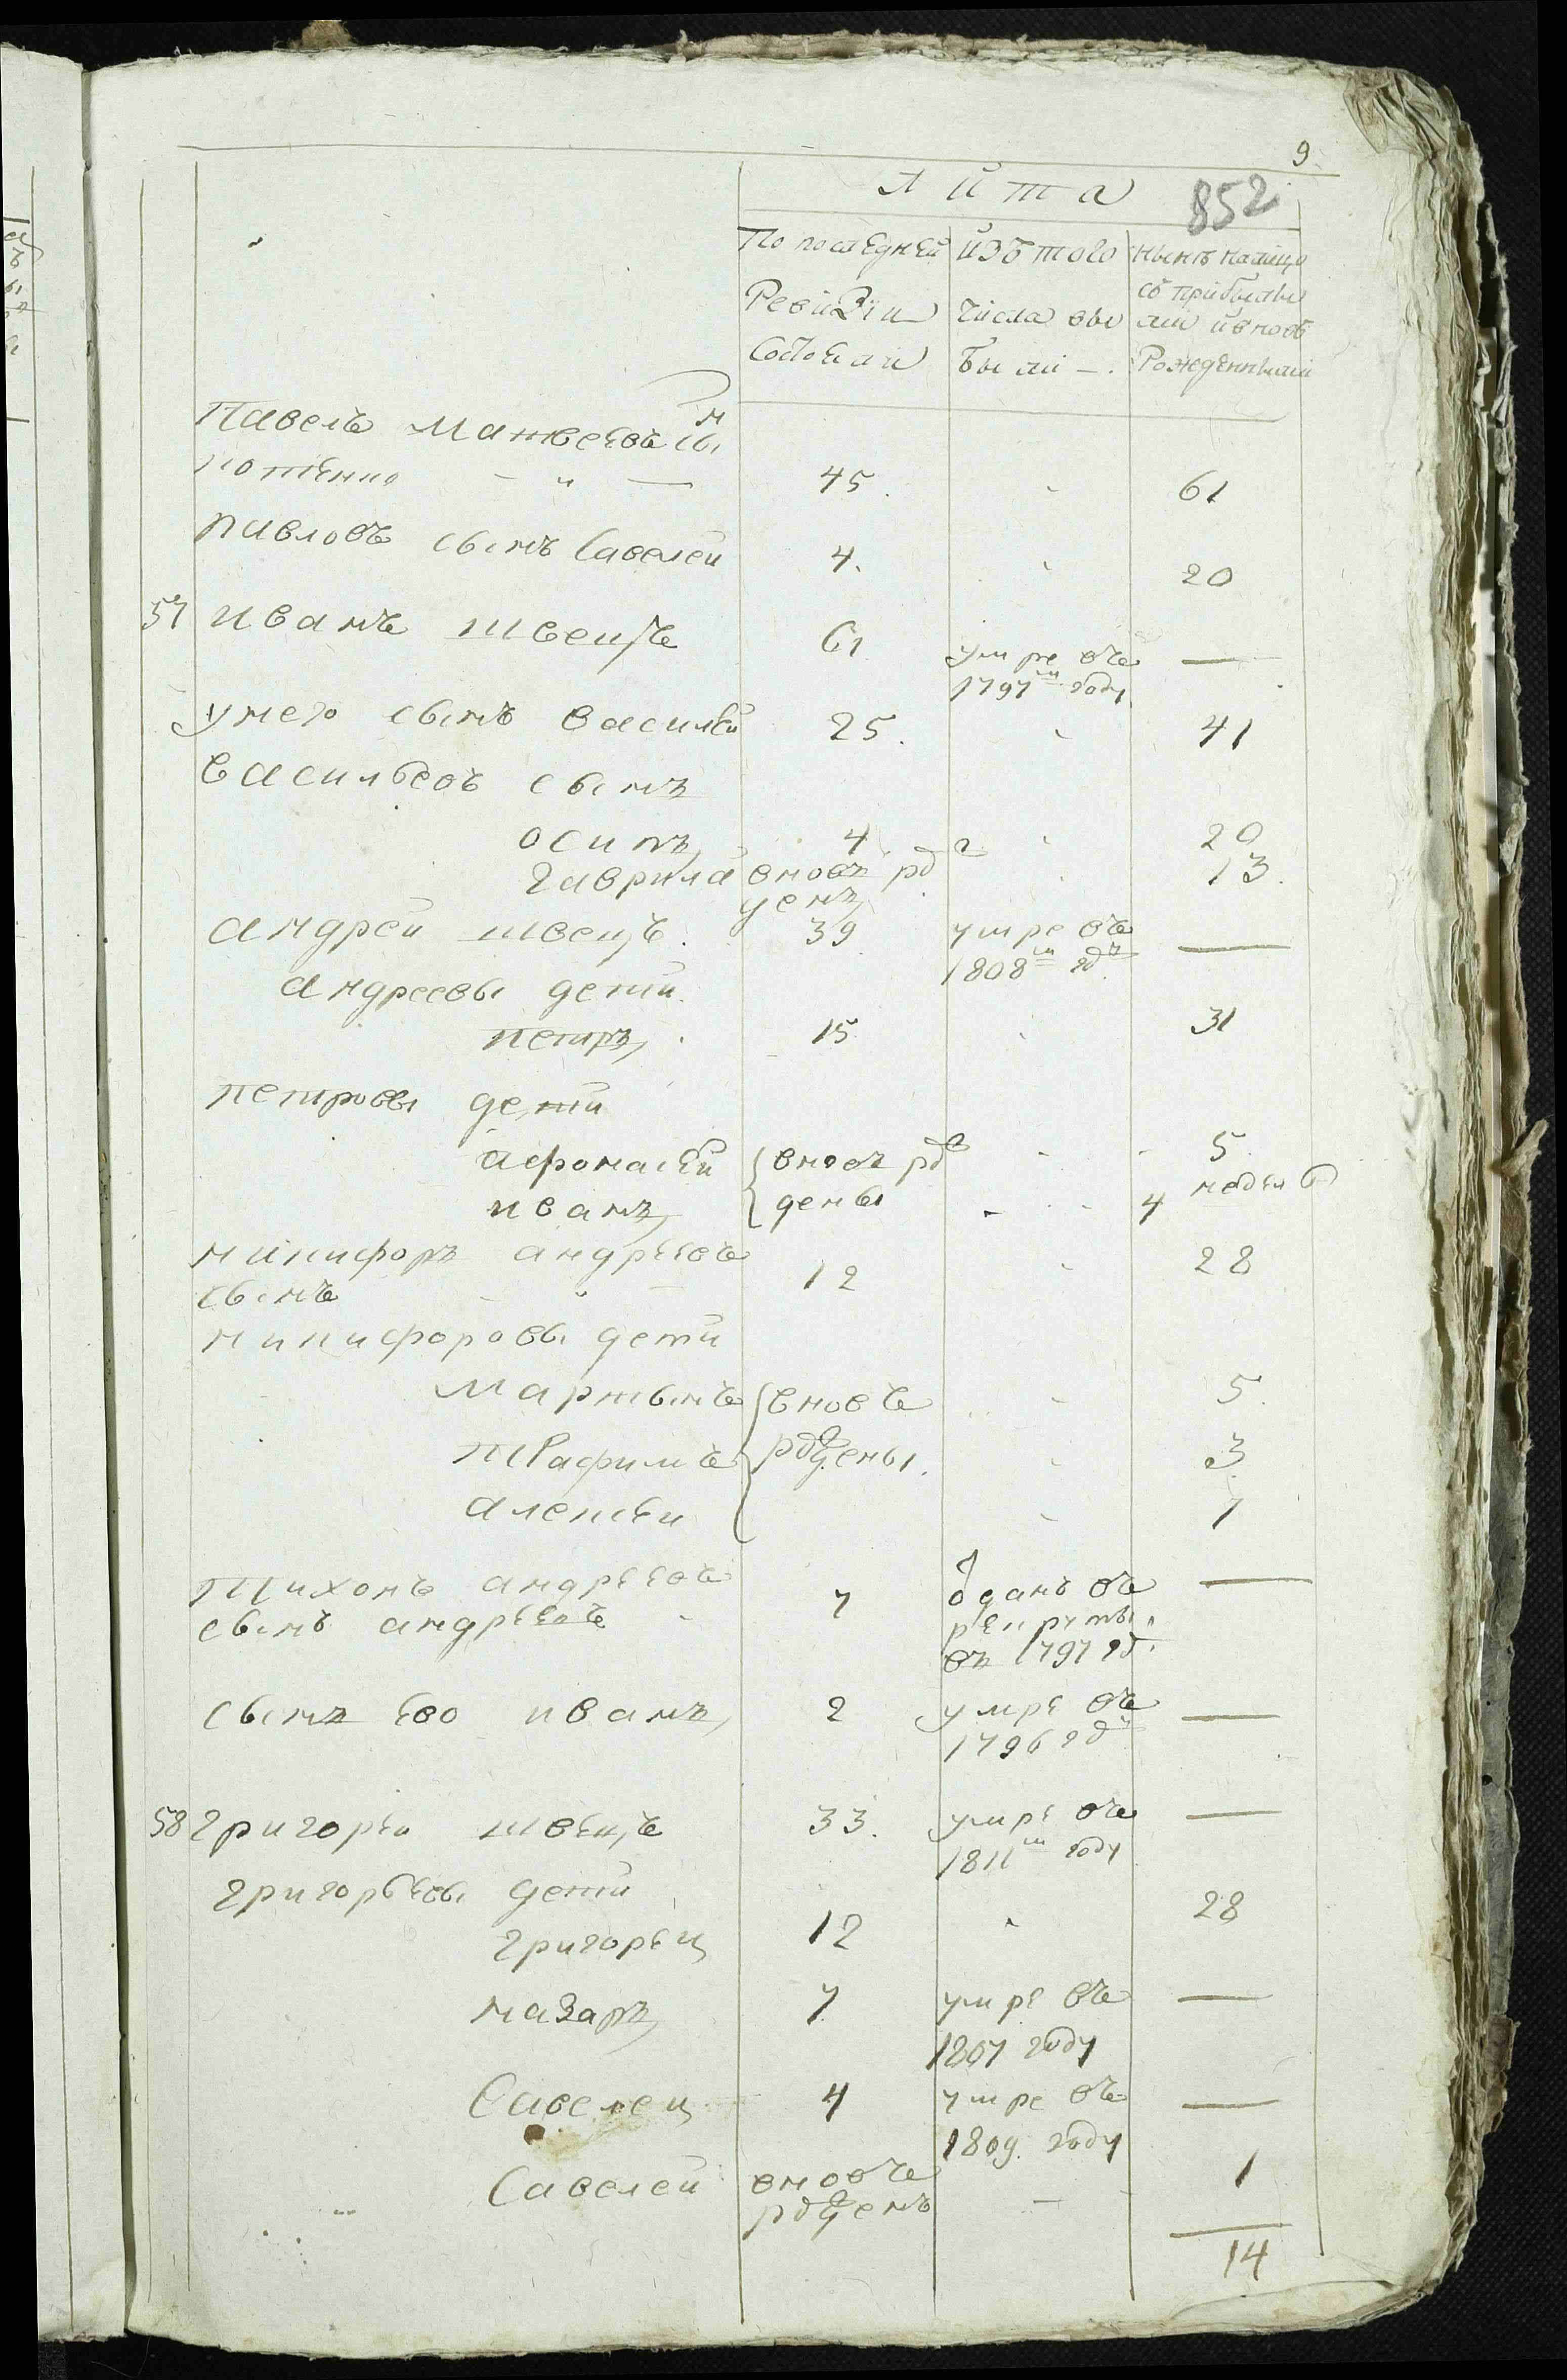 9
852
Лита
По последней Ревизіи Состоали
изъ того числа выбыли
нынѣ налицо съ прибылыми и вновь Рожденными
Павелъ Матвеевъ сын
Котенко 45. 61
Павловъ сынъ Савелей 4. 20
57 иванъ швецъ 61 умре въ 1797м году —
у него сынъ василей 25. 41
васильевъ сынъ
осипъ 4 20
гаврила вновъ рдженъ 13.
андрей швецъ 39 умре въ 1808м гду —
андреевы дети
петръ 15 31
петровы дети
афонасей вновъ рждены 5
иванъ 4 недели
никифоръ андреевъ
сынъ 12 28
никифоровы дети
Мартынъ вновъ рждены. 5.
трафимъ 3
алексеи 1
тихонъ андреевъ
сынъ андреевъ 7 одданъ въ рекруты въ 1797 гд. —
сынъ ево иванъ 2 умре въ 1796 гду —
58 григореи швецъ 33. умре въ 1811м году —
григорьевы дети
григореи 12 28
назаръ 7 умре въ 1807 году —
Савелеи 4 умре въ 1809. году —
Савелеи вновъ ржденъ 1
14